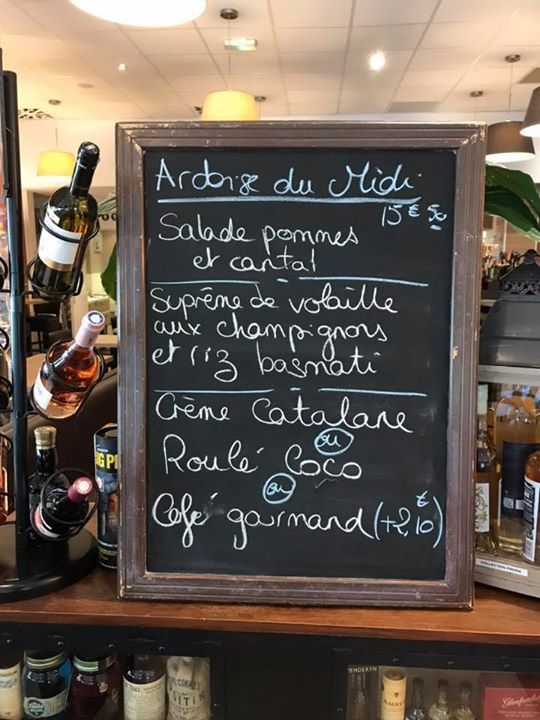 Ardoise du Midi
15€50
Salade pommes
et cantal
Suprême de volaille
aux champignons
et riz basmati
Crème Catalane
ou
Roulé Coco
ou
Café gourmand (+2,€10)
COLLECTION PRIVÉE
PENDERYN